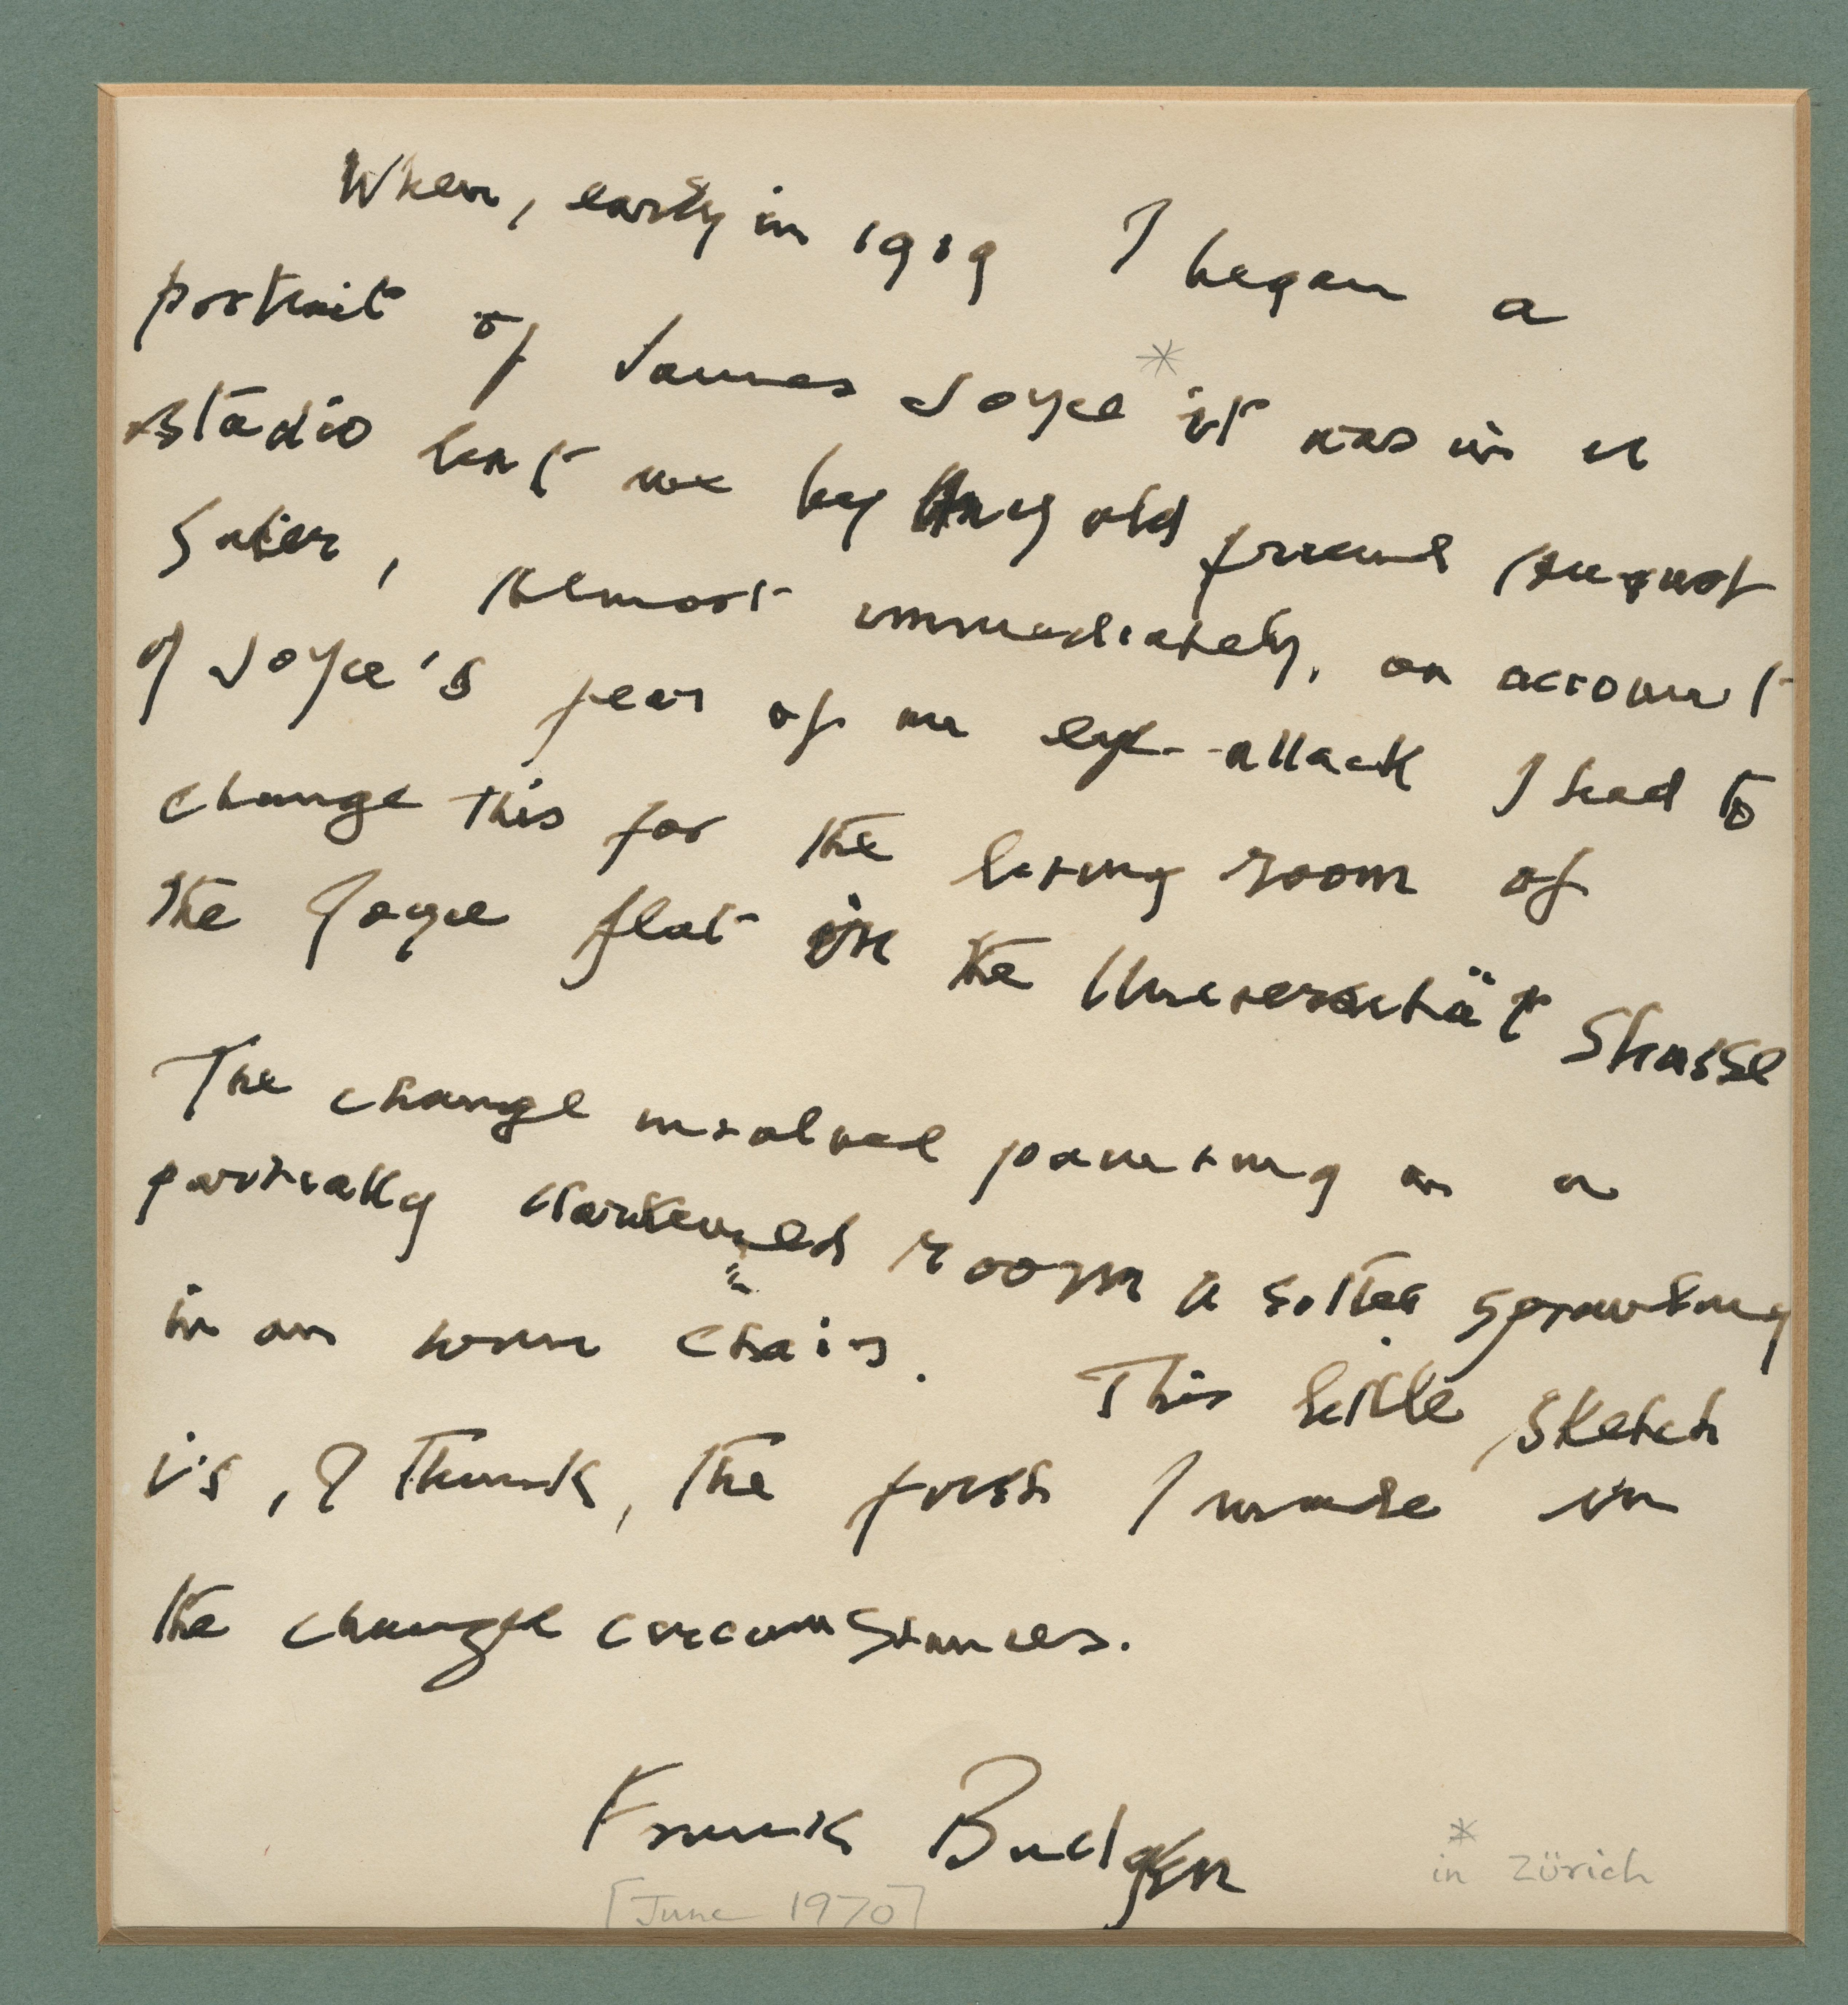 When, early in 1919 I began a
portrait of James Joyce * it was in a
studio lent me by my old friend August
Suter, Almost immediately, on account
of Joyce's fear of an eye-attack I had to
change this for the living room of
the Joyce flat in the Universität Strasse
The change involved painting in a
partially darkened room a sitter sprawling
in an chair. This little sketch
is, I think, the first I made in
the change circumstances.
Frank Budgen
* in Zürich
[June 1970]